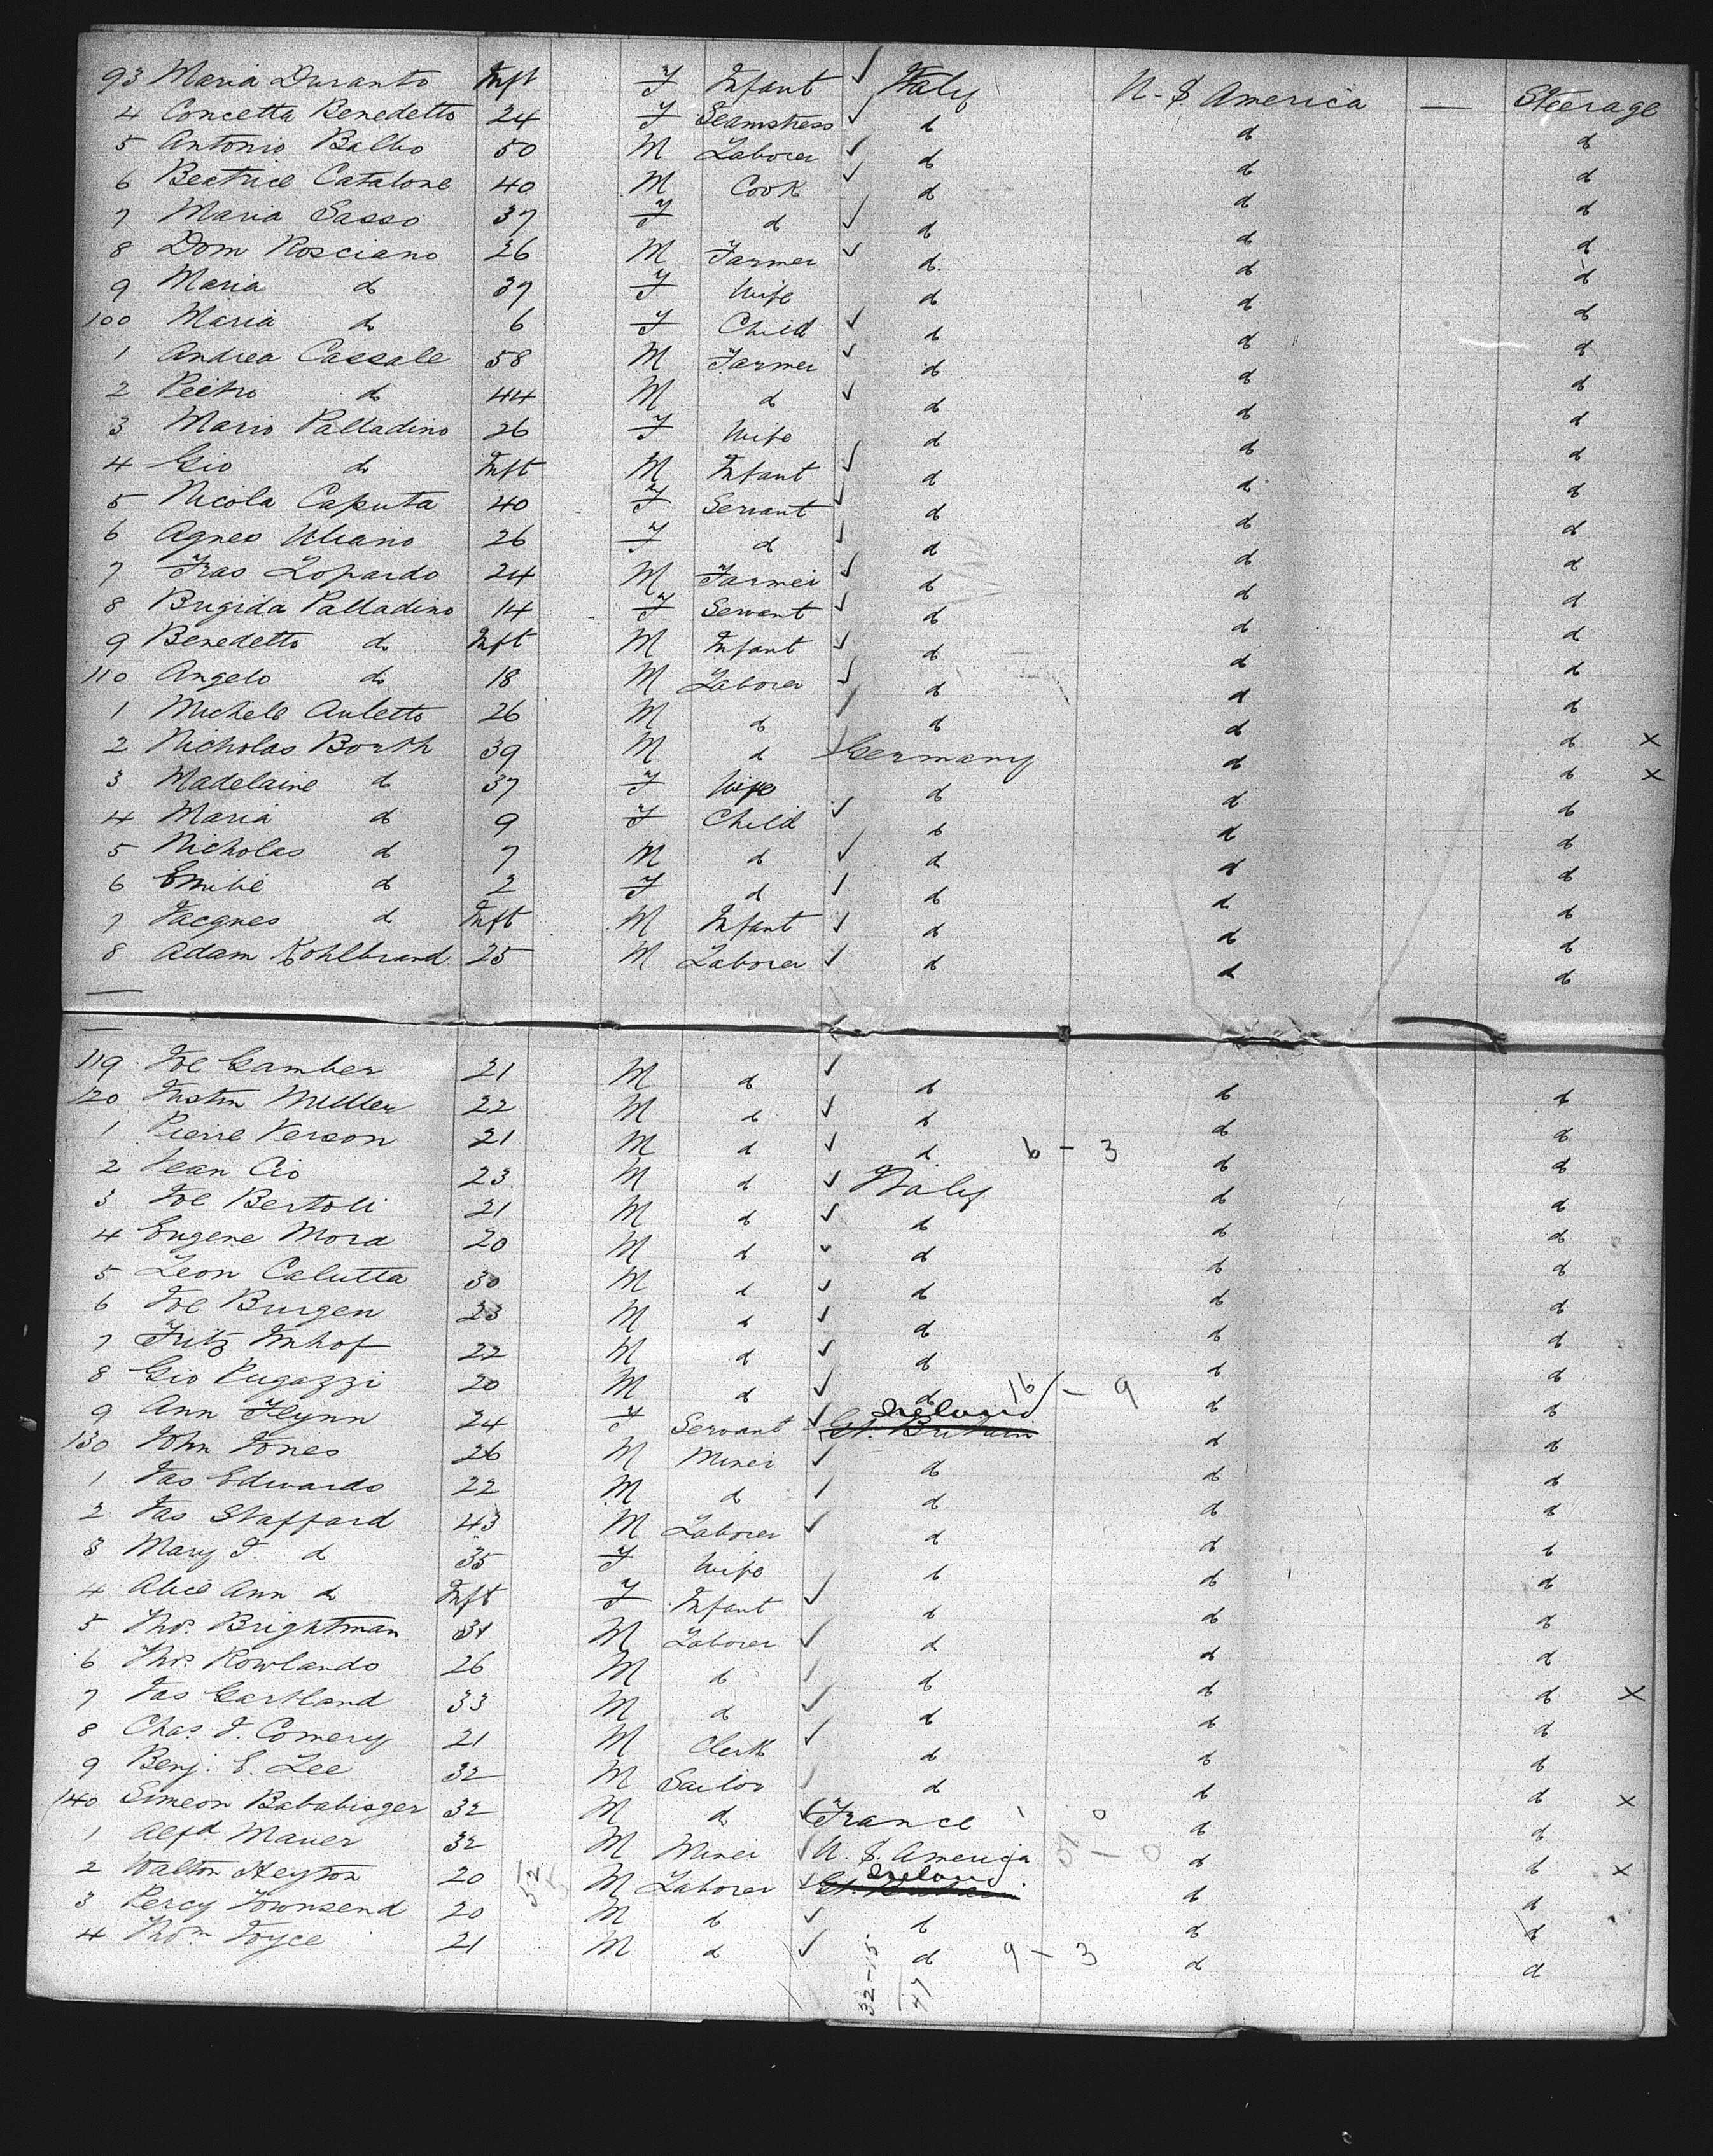 93 Maria Duranto Inft F Infant ✓ Italy U. S. America — Steerage
4 Concetta Benedetto 24 F Seamstress ✓ d d d
5 Antonio Balbo 50 M Laborer ✓ d d d
6 Beatrice Catalone 40 M Cook ✓ d d d
7 Maria Sasso 37 F d ✓ d d d
8 Dom Rosciano 26 M Farmer ✓ d d d
9 Maria d 37 F Wife d d d
100 Maria d 6 F Child ✓ d d d
1 Andrea Cassale 58 M Farmer ✓ d d d
2 Pietro d 44 M d ✓ d d d
3 Maria Palladino 26 F Wife d d d
4 Gio d Inft M Infant ✓ d d d
5 Nicola Caputa 40 F Servant ✓ d d d
6 Agnes 26 F d ✓ d d d
7 Fras Lopardo 24 M Farmer ✓ d d d
8 Brigida Palladino 14 F Servant ✓ d d d
9 Benedetto d Inft M Infant ✓ d d d
110 Angelo d 18 M Laborer ✓ d d d
1 Michele Auletto 26 M d ✓ d d d x
2 Nicholas Booth 39 M d ✓ Germany d d x
3 Madelaine d 37 F Wife d d d
4 Maria d 9 F Child ✓ d d d
5 Nicholas d 7 M d ✓ d d d
6 Emilie d 2 F d ✓ d d d
7 Jacques d Inft M Infant ✓ d d d
8 Adam Kohlbrand 25 M Laborer ✓ d d d
119 Joe Gamber 21 M d ✓ d d d
120 Justin Muller 22 M d ✓ d d d
1 Pierre Verson 21 M d ✓ d 6 - 3 d d
2 Jean Cio 23 M d ✓ Italy d d
3 Joe Bertoli 21 M d ✓ d d d
4 Eugene Mora 20 M d ✓ d d d
5 Leon Calutta 30 M d ✓ d d d
6 Joe Burgen 23 M d ✓ d d d
7 Fritz Imhof 22 M d ✓ d d d
8 Gio Pugazzi 20 M d ✓ d 16 - 9 d d
9 Ann Flynn 24 F Servant ✓ Gt. Britain Ireland d d
130 John Jones 26 M Miner ✓ d d d
1 Jas Edwards 22 M d ✓ d d d
2 Jas Stafford 43 M Laborer ✓ d d d
3 Mary J. d 35 F Wife d d d
4 Alice Ann d Inft F Infant ✓ d d d
5 Thos. Brightman 31 M Laborer ✓ d d d
6 Thos. Rowlands 26 M d ✓ d d d
7 Jas Gartland 33 M d ✓ d d d x
8 Chas. J. Comery 21 M Clerk ✓ d d d
9 Benj. E. Lee 32 M Sailor ✓ d d d
140 Simeon Bababisger 32 M d ✓ France 1 0 d d x
1 Alfd. Mauer 32 M Miner ✓ U. S. America - 0 d d
2 Walton Heyton 20 M Laborer ✓ Gt. Britain Ireland d d x
3 Percy Townsend 20 M d ✓ d d d
4 Thom Joyce 21 M d ✓ d 9 - 3 d d
32-15
47